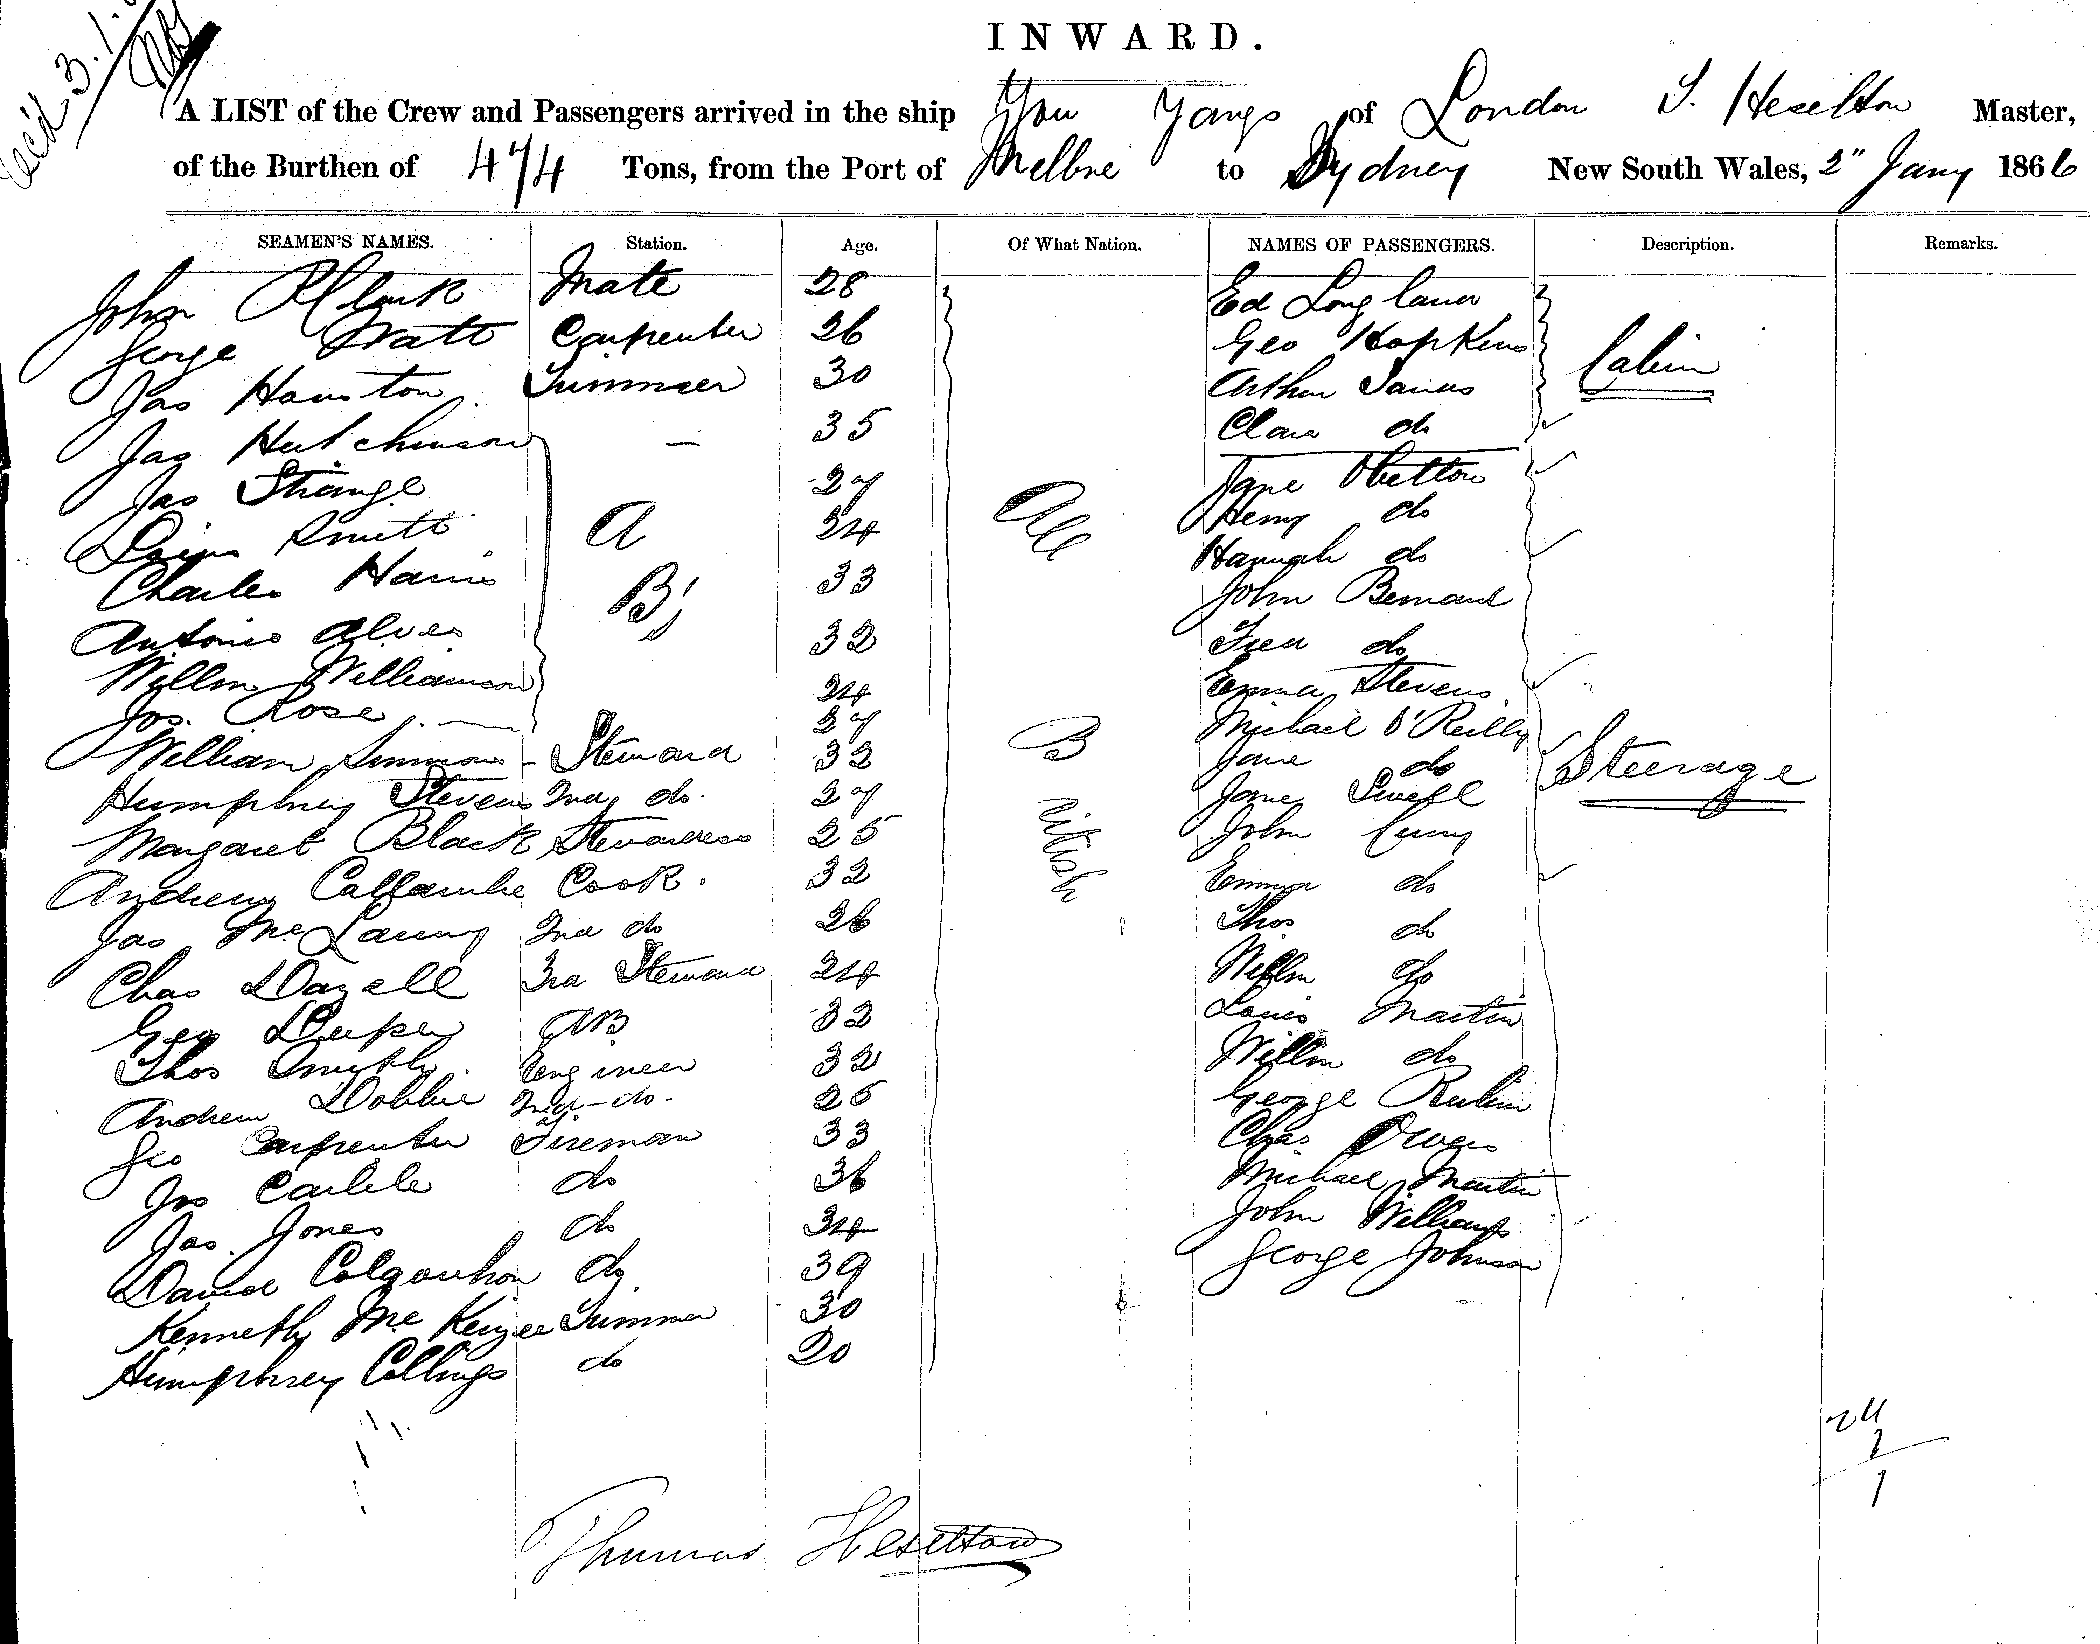 Rec'd 3.1.
INWARD.
A LIST of the Crew and Passengers arrived in the ship You Yangs of London T. Heselton Master,
of the Burthen of 474 Tons, from the Port of Melbne to Sydney New South Wales, 2" Jany 1866
SEAMEN'S NAMES. Station. Age. Of What Nation. NAMES OF PASSENGERS. Description. Remarks.
John Clark Mate 28
George Watt Carpenter 26
Jas Houston Trimmer 30
Jas Hutchinson — 35
Jas Strange 27
Smith 24
Charles Harris 33
Antonio Alves 32
Willm Williamson 24
Jos. Rose 27
A
B's
William Simmons Steward 32
Humphrey Stevens 2nd do. 27
Margaret Black Stewardess 25
Andrew Callambe Cook. 32
Jas Mc 2nd do 26
Chas Dazell 3rd Steward 24
Geo AB 32
Thos Smyth Engineer 32
Andrew Dobbie 2nd - do - 25
Geo Carpenter Fireman 33
Jno Carlile do 36
Jas. Jones do 34
David Colquhon do 39
Kenneth McKenzee Trimmer 30
Humphrey Collings do 20
All
British
Ed Long
Geo Hopkins
Arthur
Clara do
Cabin
Jane
Henry do
Hannah do
John Bernard
do
Emma Stevens
Michael O'Reilly
Jane do
Jane
John
Emma do
Thos do
Willm do
Louis Martin
Willm do
George Rubin
Chas Owens
Michael Martin
John Williams
George Johnson
Steerage
24
1
Thomas Heselton